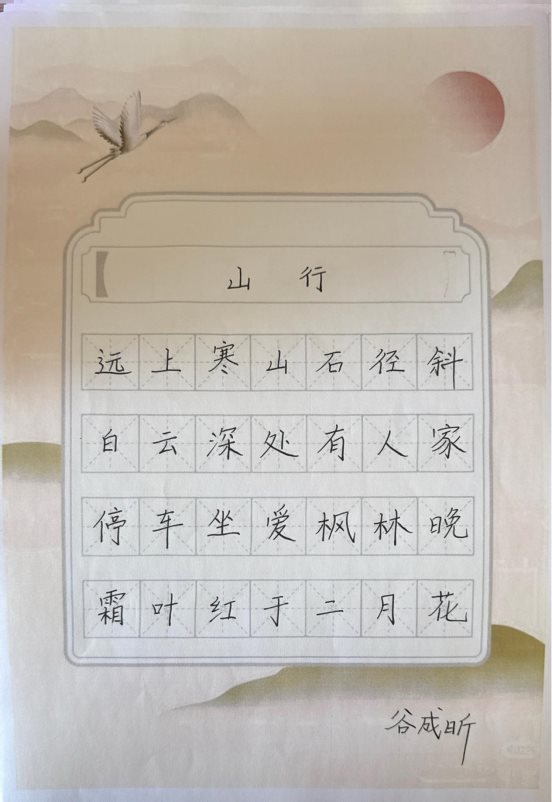 山行
远上寒山石径斜
白云深处有人家
停车坐爱枫林晚
霜叶红于二月花
谷成昕